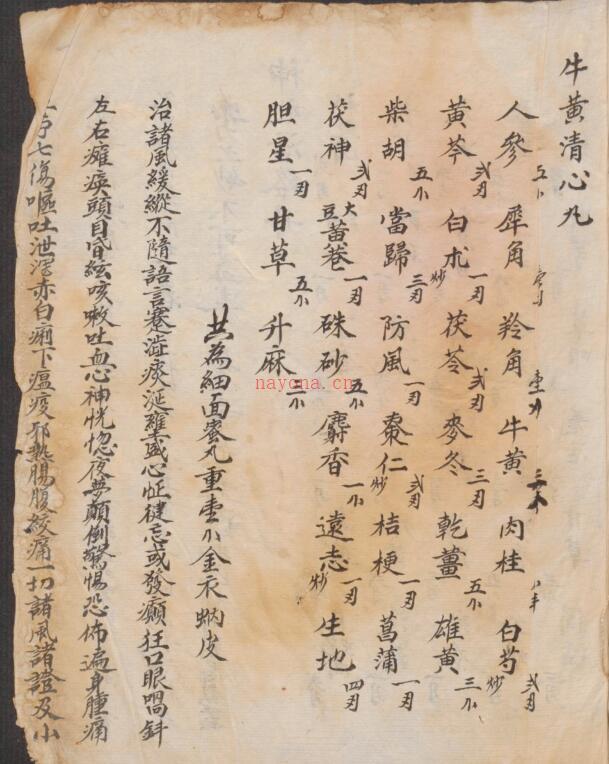 牛黄清心丸
人參 五卜 犀角 羚角 壹 牛黄 三 肉桂 白芍 炒 弍刃
黄芩 弍刃 白朮 炒 一刃 茯苓 弍刃 麥冬 三刃 乾薑 五小 雄黄 三小
柴胡 五小 當歸 三刃 防風 一刃 棗仁 炒 弍刃 桔梗 一刃 菖蒲 一刃
茯神 弍刃 大豆黄卷 一刃 硃砂 五小 麝香 一小 遠志 炒 一刃 生地 四刃
胆星 一刃 甘草 五小 升麻 三小
共為細面蜜丸重壹小金衣蜡皮
治諸風緩縱不隨語言蹇澁痰涎壅盛心怔健忘或發癲狂口眼喎斜
左右癱瘓頭目昏眩咳嗽吐血心神恍惚夜夢顛倒驚惕恐怖遍身腫痛
七傷嘔吐泄瀉赤白痢下瘟疫邪熱腸腹絞痛一切諸風諸證及小
nayona.cn